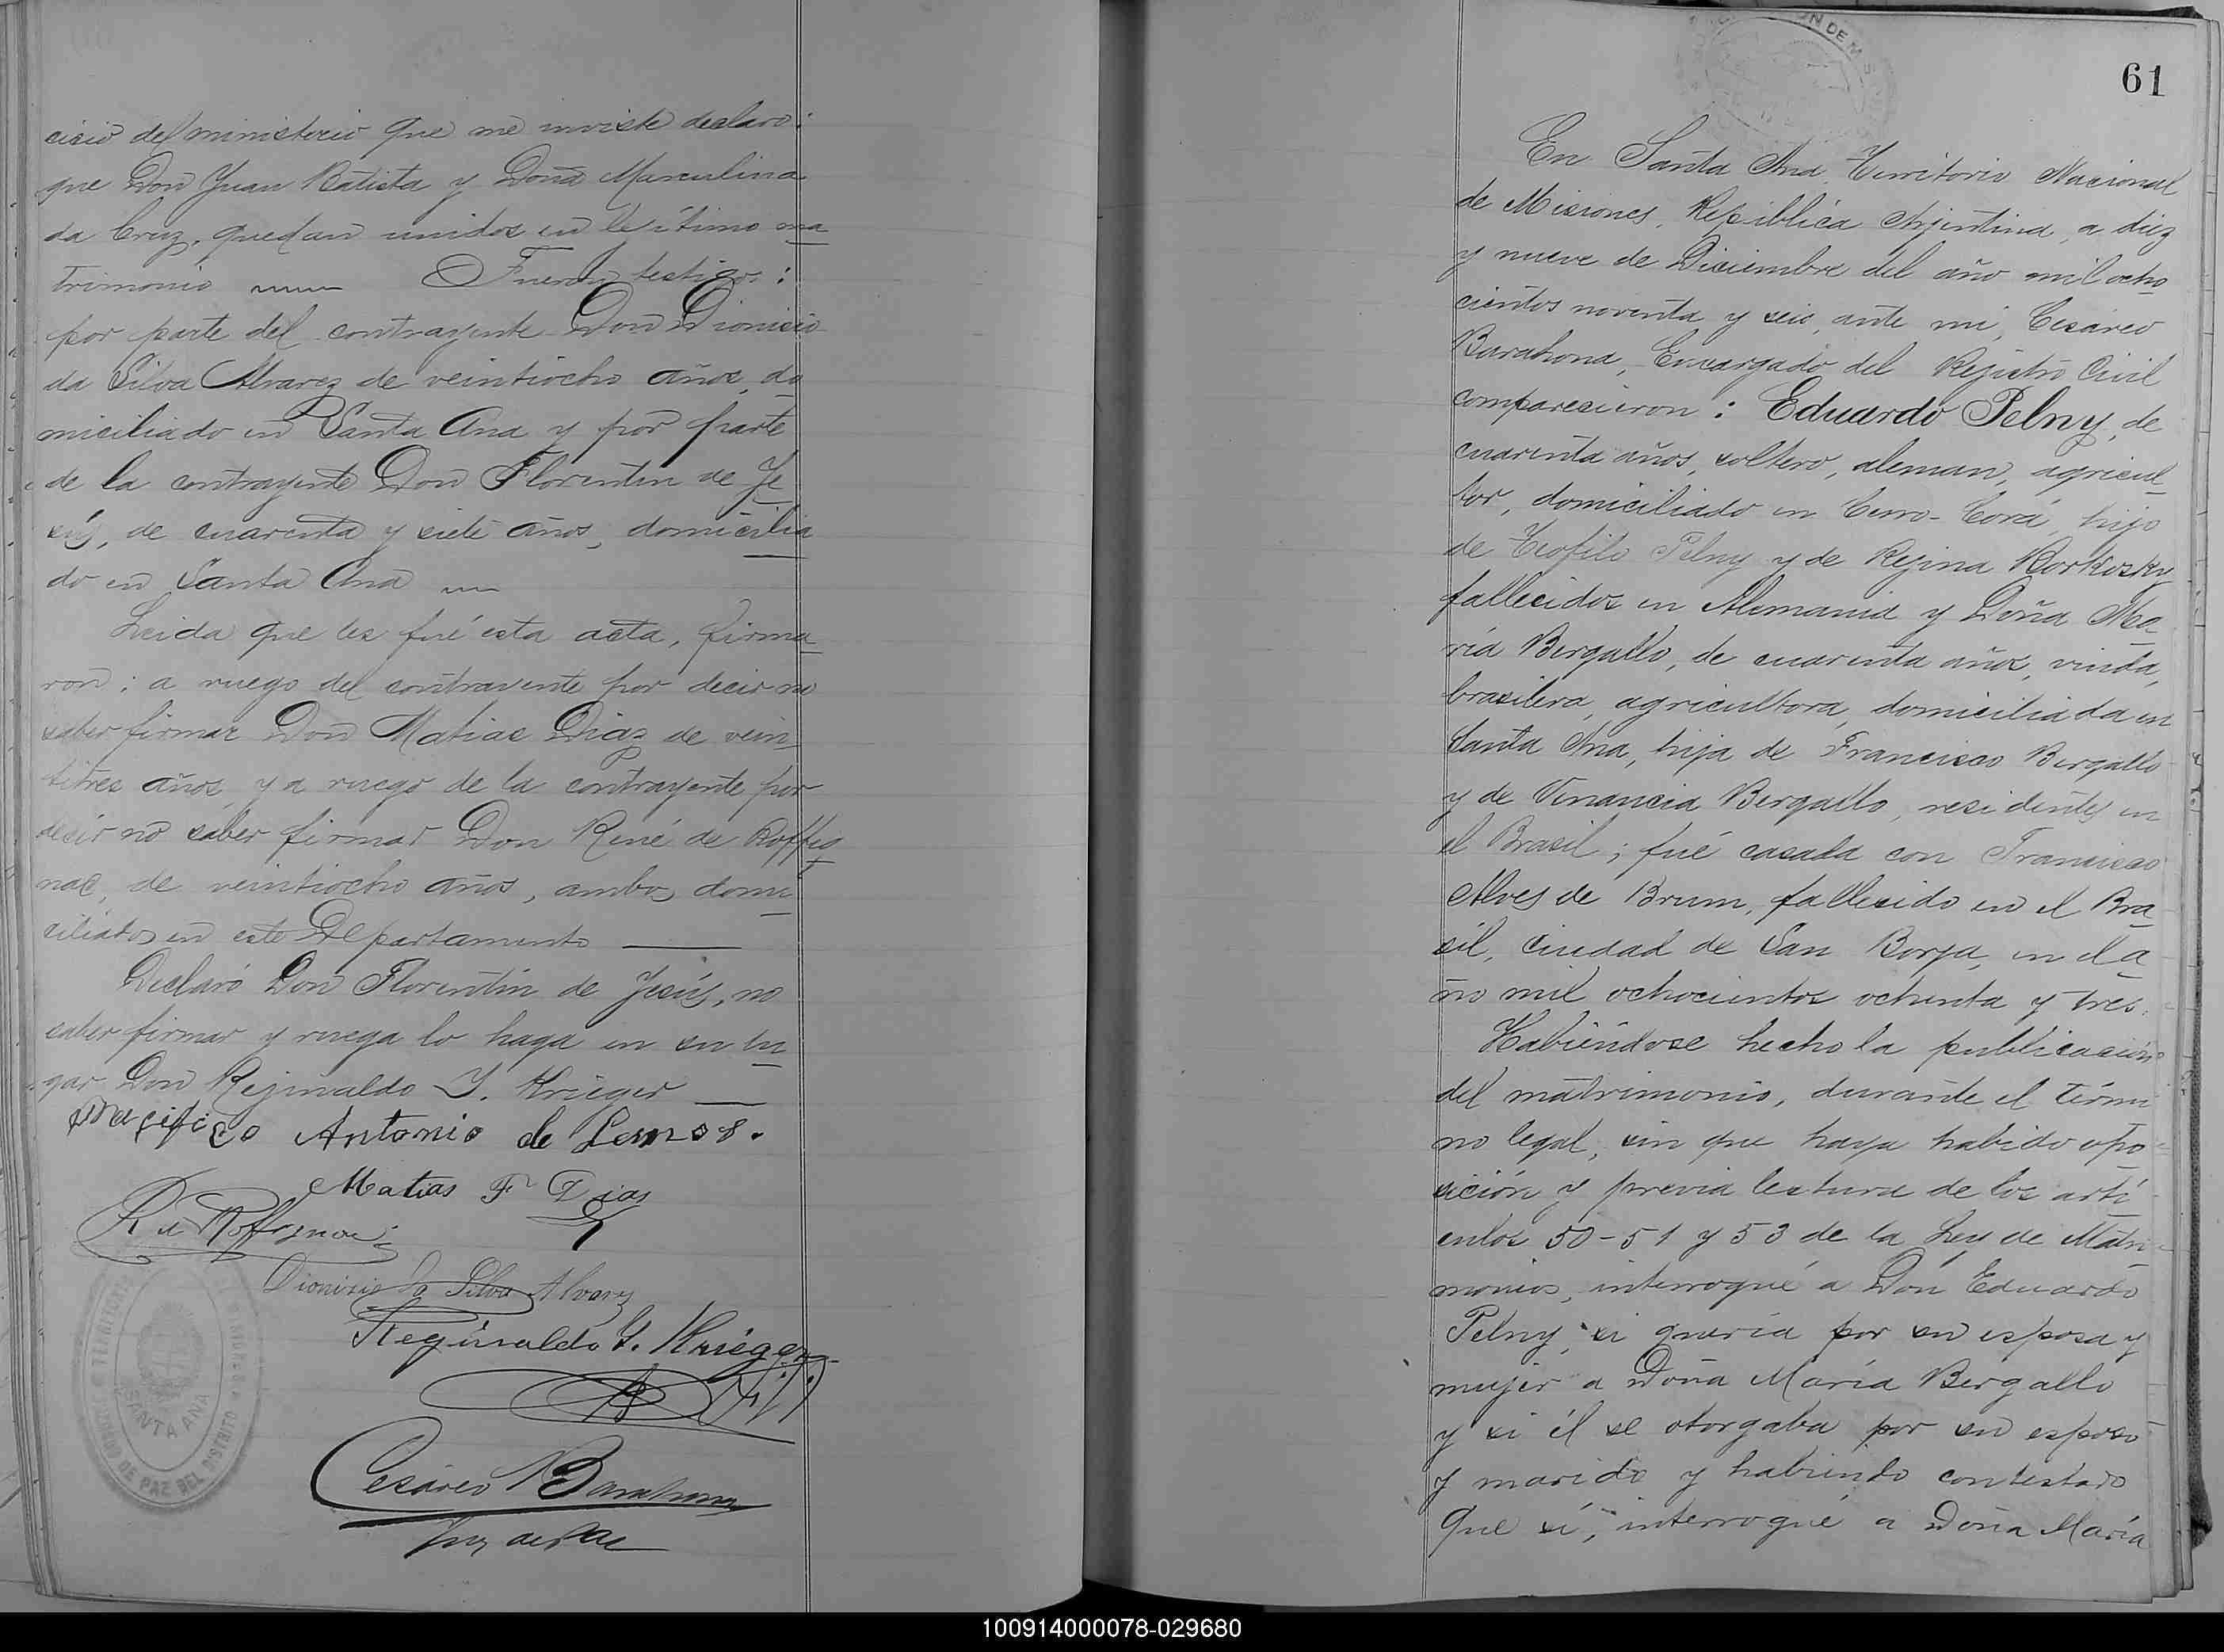 cicio del ministerio que me inviste declaro:
que Don Juan Batista y Doña Marculina
da Cruz, quedan unidos en lejítimo ma
trimonio Fueron testigos:
por parte del contrayente Don Dionisio
da Silva Alvarez de veintiocho años, do
miciliado en Santa Ana y por parte
de la contrayente Don Florentin de Je
sús, de cuarenta y siete años, domicilia
do en Santa Ana
Leida que les fué esta acta, firma
ron: a ruego del contrayente por decir no
saber firmar Don Matias Diaz de vein
titres años, y a ruego de la contrayente por
decir no saber firmar Don René de Roffig
nac, de veintiocho años, ambos domi
ciliados en este Departamento
Declaró Don Florentín de Jesús, no
saber firmar y ruega lo haga en su lu
gar Don Rejinaldo Y. Krieger
Antonio de Lemos.
Matias F Dias
R de Roffignac
Dionisio da Silva Alvarez
Reginaldo Y. Krieger
Cesáreo Barahona
Juez de Paz
SANTA ANA
JUZGADO DE PAZ DEL DISTRITO
61
En Santa Ana Territorio Nacional
de Misiones, República Arjentina, a diez
y nueve de Diciembre del año mil ocho
cientos noventa y seis, ante mi, Cesáreo
Barahona, Encargado del Rejistro Civil
comparecieron: Eduardo Pelny, de
cuarenta años, soltero, aleman, agricul
tor, domiciliado en Cerro-Corá, hijo
de Teofilo Pelny y de Rejina Korkosky
fallecidos en Alemania y Doña Ma
ría Bergallo, de cuarenta años, viuda,
brasilera, agricultora, domiciliada en
Santa Ana, hija de Francisco Bergallo
y de Venancia Bergallo, residentes en
el Brasil; fué casada con Francisco
Alves de Brum, fallecido en el Bra
sil, ciudad de San Borja, en el a
ño mil ochocientos ochenta y tres.
Habiéndose hecho la publicación
del matrimonio, durante el térmi
no legal, sin que haya habido opo
sición y previa lectura de los artí
culos 50-51 y 53 de la Ley de Matri
monios, interrogué a Don Eduardo
Pelny, si quería por su esposa y
mujer a Doña María Bergallo
y si él se otorgaba por su esposo
y marido y habiendo contestado
que sí, interrogué a Doña María
100914000078-029680